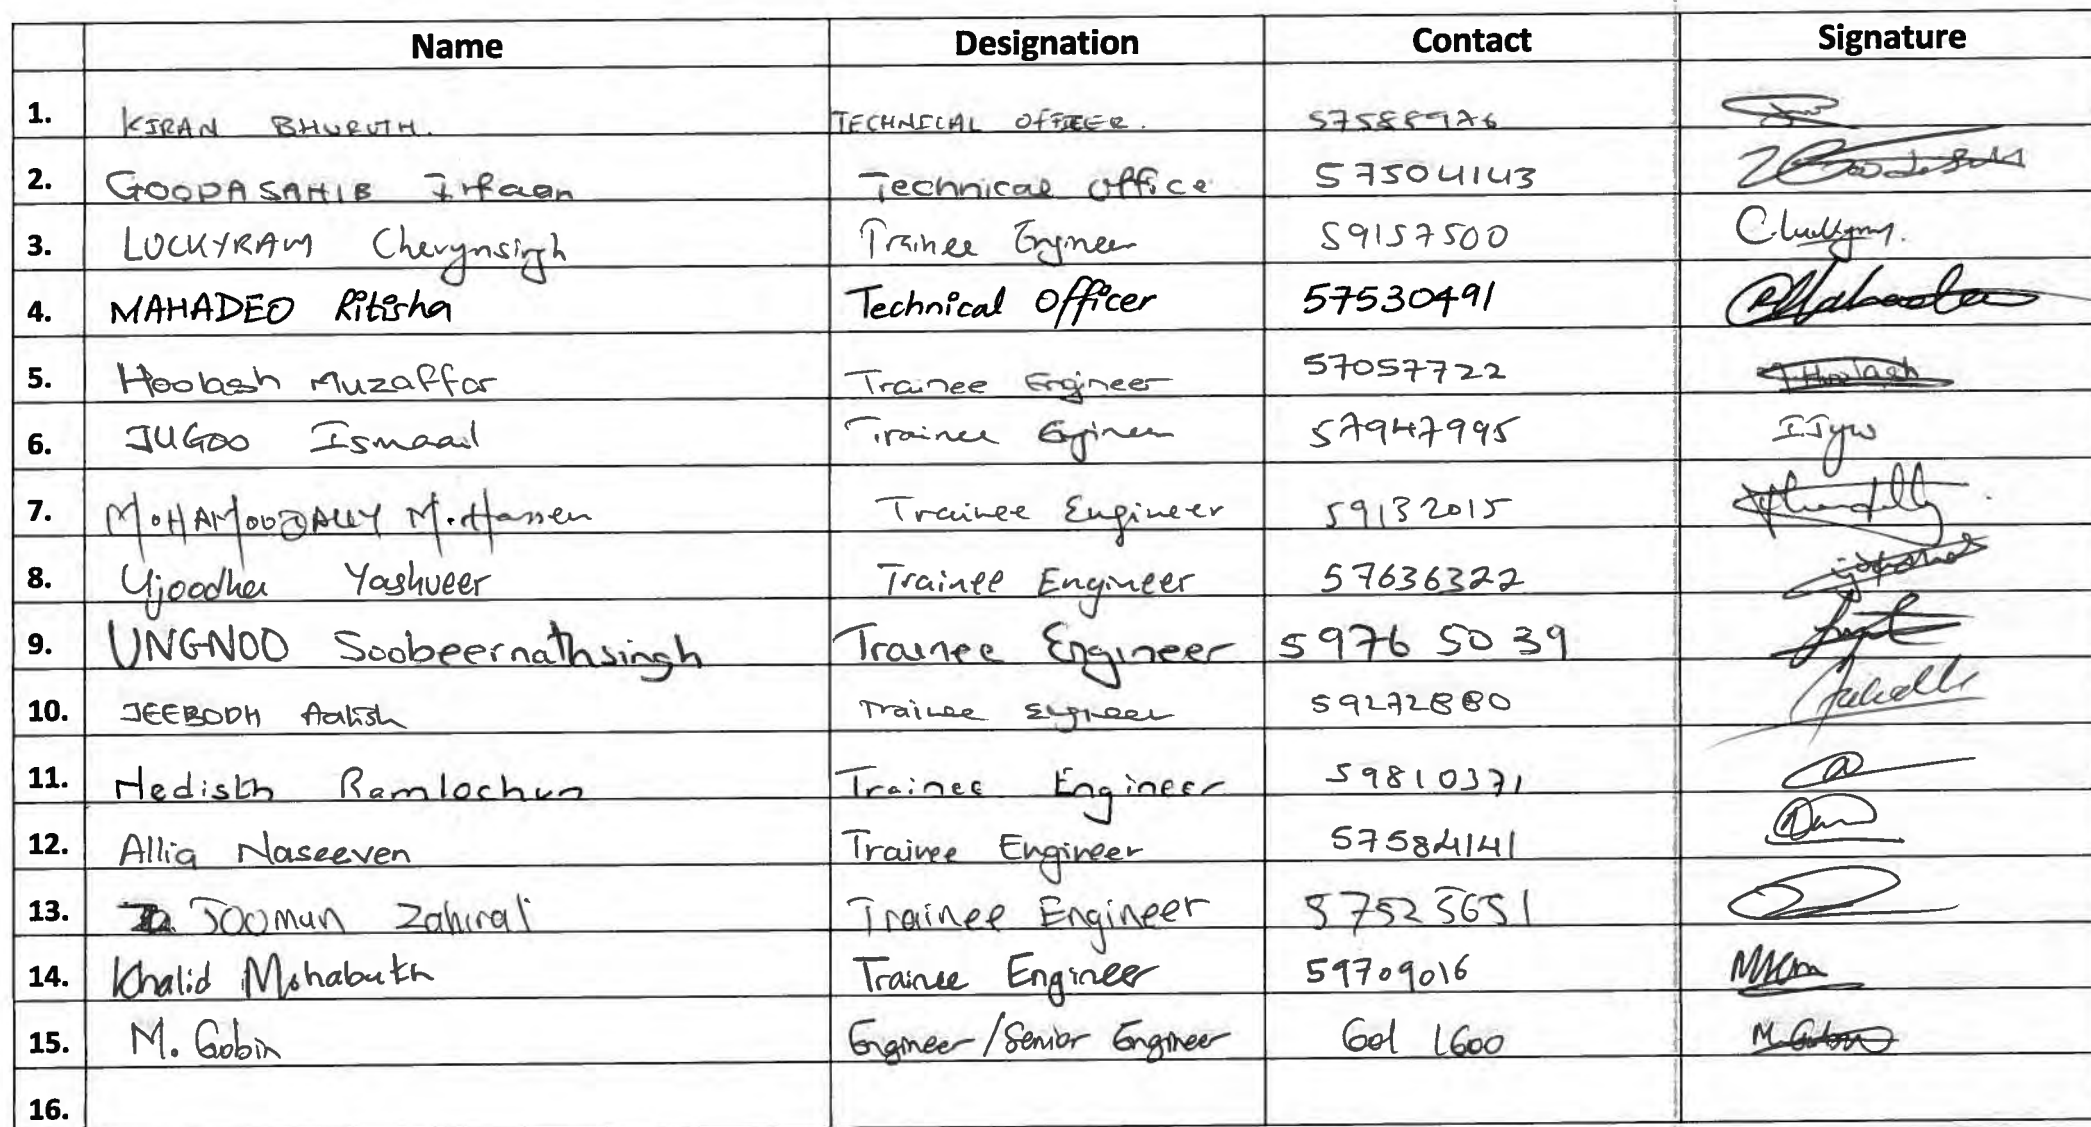 Name Designation Contact Signature
1. KIRAN BHURUTH. TECHNICAL OFFICER. 57588976
2. GOODASAHIB Irfaan Technical Office 57504143
3. LUCKYRAM Cherynsingh Trainee Engineer 59157500
4. MAHADEO Ritisha Technical Officer 57530491
5. Hoolash Muzaffar Trainee Engineer 57057722 Hoolash
6. JUGOO Ismaail Trainee Engineer 57947995
7. MOHAMOODALLY M.Hassen Trainee Engineer 59132015
8. Ujoodha Yashveer Trainee Engineer 57636322
9. UNGNOO Soobeernathsingh Trainee Engineer 5976 50 39
10. JEEBODH Aalish Trainee Engineer 59272880
11. Hedisth Ramlochun Trainee Engineer 59810371
12. Allia Naseeven Trainee Engineer 57584141
13. JOOMUN Zahiral Trainee Engineer 57525651
14. Khalid Mohabuth Trainee Engineer 59709016
15. M. Gobin Engineer/Senior Engineer 601 1600 M. Gobin
16.